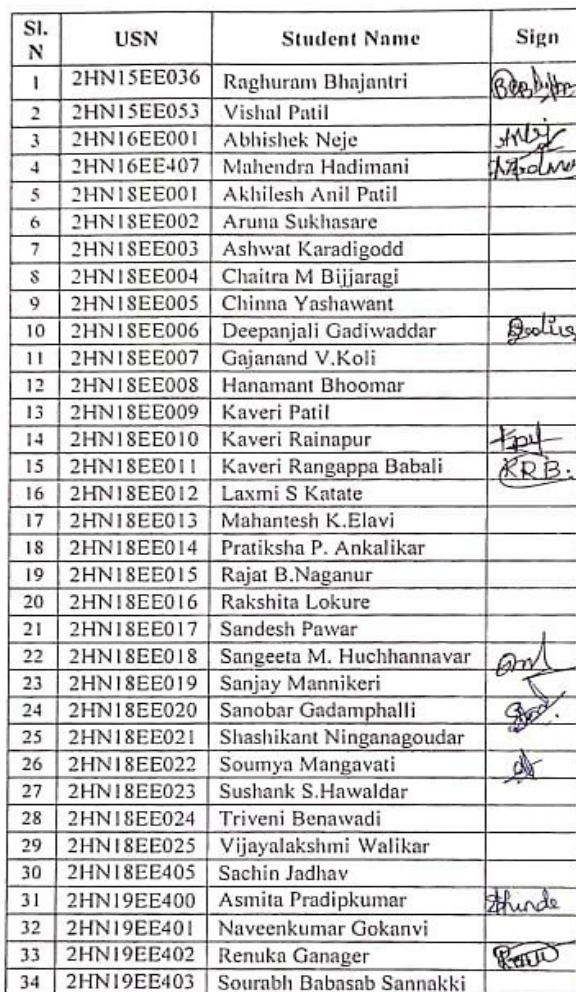 Sl. N USN Student Name Sign
1 2HN15EE036 Raghuram Bhajantri
2 2HN15EE053 Vishal Patil
3 2HN16EE001 Abhishek Neje
4 2HN16EE407 Mahendra Hadimani
5 2HN18EE001 Akhilesh Anil Patil
6 2HN18EE002 Aruna Sukhasare
7 2HN18EE003 Ashwat Karadigodd
8 2HN18EE004 Chaitra M Bijjaragi
9 2HN18EE005 Chinna Yashawant
10 2HN18EE006 Deepanjali Gadiwaddar
11 2HN18EE007 Gajanand V.Koli
12 2HN18EE008 Hanamant Bhoomar
13 2HN18EE009 Kaveri Patil
14 2HN18EE010 Kaveri Rainapur
15 2HN18EE011 Kaveri Rangappa Babali KRB.
16 2HN18EE012 Laxmi S Katate
17 2HN18EE013 Mahantesh K.Elavi
18 2HN18EE014 Pratiksha P. Ankalikar
19 2HN18EE015 Rajat B.Naganur
20 2HN18EE016 Rakshita Lokure
21 2HN18EE017 Sandesh Pawar
22 2HN18EE018 Sangeeta M. Huchhannavar
23 2HN18EE019 Sanjay Mannikeri
24 2HN18EE020 Sanobar Gadamphalli
25 2HN18EE021 Shashikant Ninganagoudar
26 2HN18EE022 Soumya Mangavati
27 2HN18EE023 Sushank S.Hawaldar
28 2HN18EE024 Triveni Benawadi
29 2HN18EE025 Vijayalakshmi Walikar
30 2HN18EE405 Sachin Jadhav
31 2HN19EE400 Asmita Pradipkumar Shinde
32 2HN19EE401 Naveenkumar Gokanvi
33 2HN19EE402 Renuka Ganager
34 2HN19EE403 Sourabh Babasab Sannakki